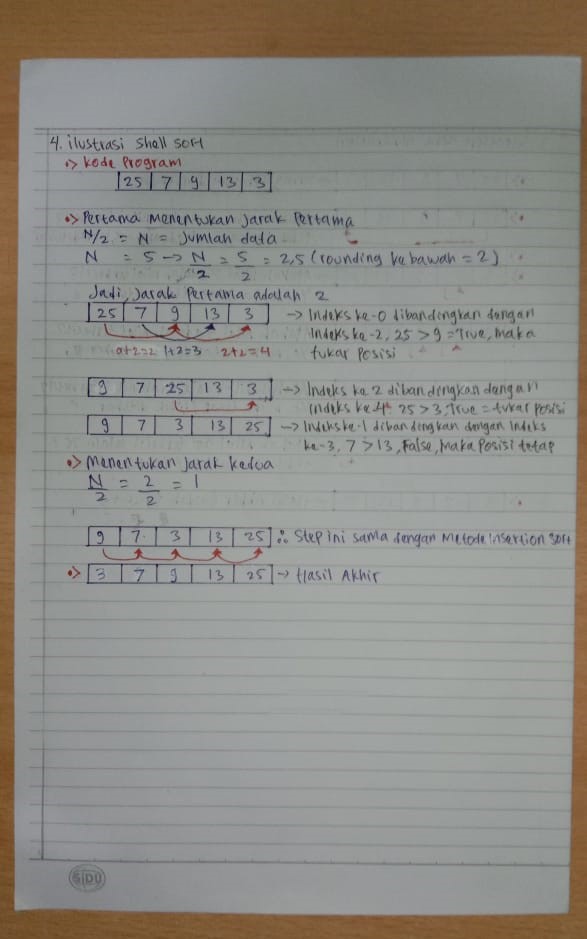 4. ilustrasi shell sort
•> Kode Program
25 | 7 | 9 | 13 | 3
•> Pertama menentukan jarak pertama
N/2 = N = Jumlah data
N = 5 -> N/2 = 5/2 = 2,5 (rounding ke bawah = 2)
Jadi, jarak Pertama adalah 2
25 | 7 | 9 | 13 | 3 -> Indeks ke-0 dibandingkan dengan
Indeks ke-2, 25 > 9 = True, maka
0+2=2 1+2=3 2+2=4 tukar Posisi
9 | 7 | 25 | 13 | 3 -> Indeks ke 2 dibandingkan dengan
indeks ke 4 25 > 3, True = tukar posisi
9 | 7 | 3 | 13 | 25 -> Indeks ke-1 dibandingkan dengan Indeks
ke-3, 7 > 13, False, maka Posisi tetap
•> Menentukan jarak kedua
N/2 = 2/2 = 1
9 | 7 | 3 | 13 | 25 ∴ Step ini sama dengan Metode Insertion Sort
•> 3 | 7 | 9 | 13 | 25 -> Hasil Akhir
SIDU